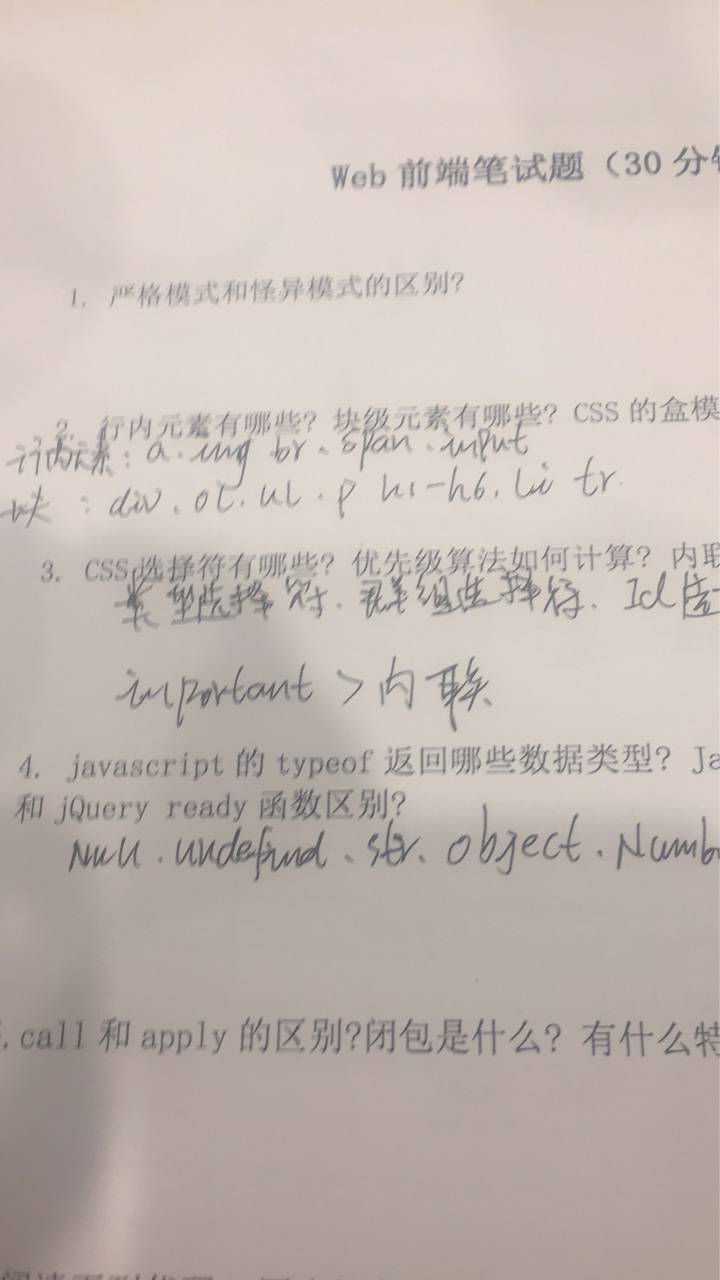 Web 前端笔试题（30 分
1. 严格模式和怪异模式的区别?
2. 行内元素有哪些? 块级元素有哪些? CSS 的盒模
行内元素：a.img br、span.input
块：div、ol.ul.p h1-h6.li tr.
3. CSS 选择符有哪些? 优先级算法如何计算? 内联
类型选择符、群组选择符、Id选
important > 内联
4. javascript 的 typeof 返回哪些数据类型? Ja
和 jQuery ready 函数区别?
Null.undefined、str、object.Numb
.call 和 apply 的区别?闭包是什么? 有什么特